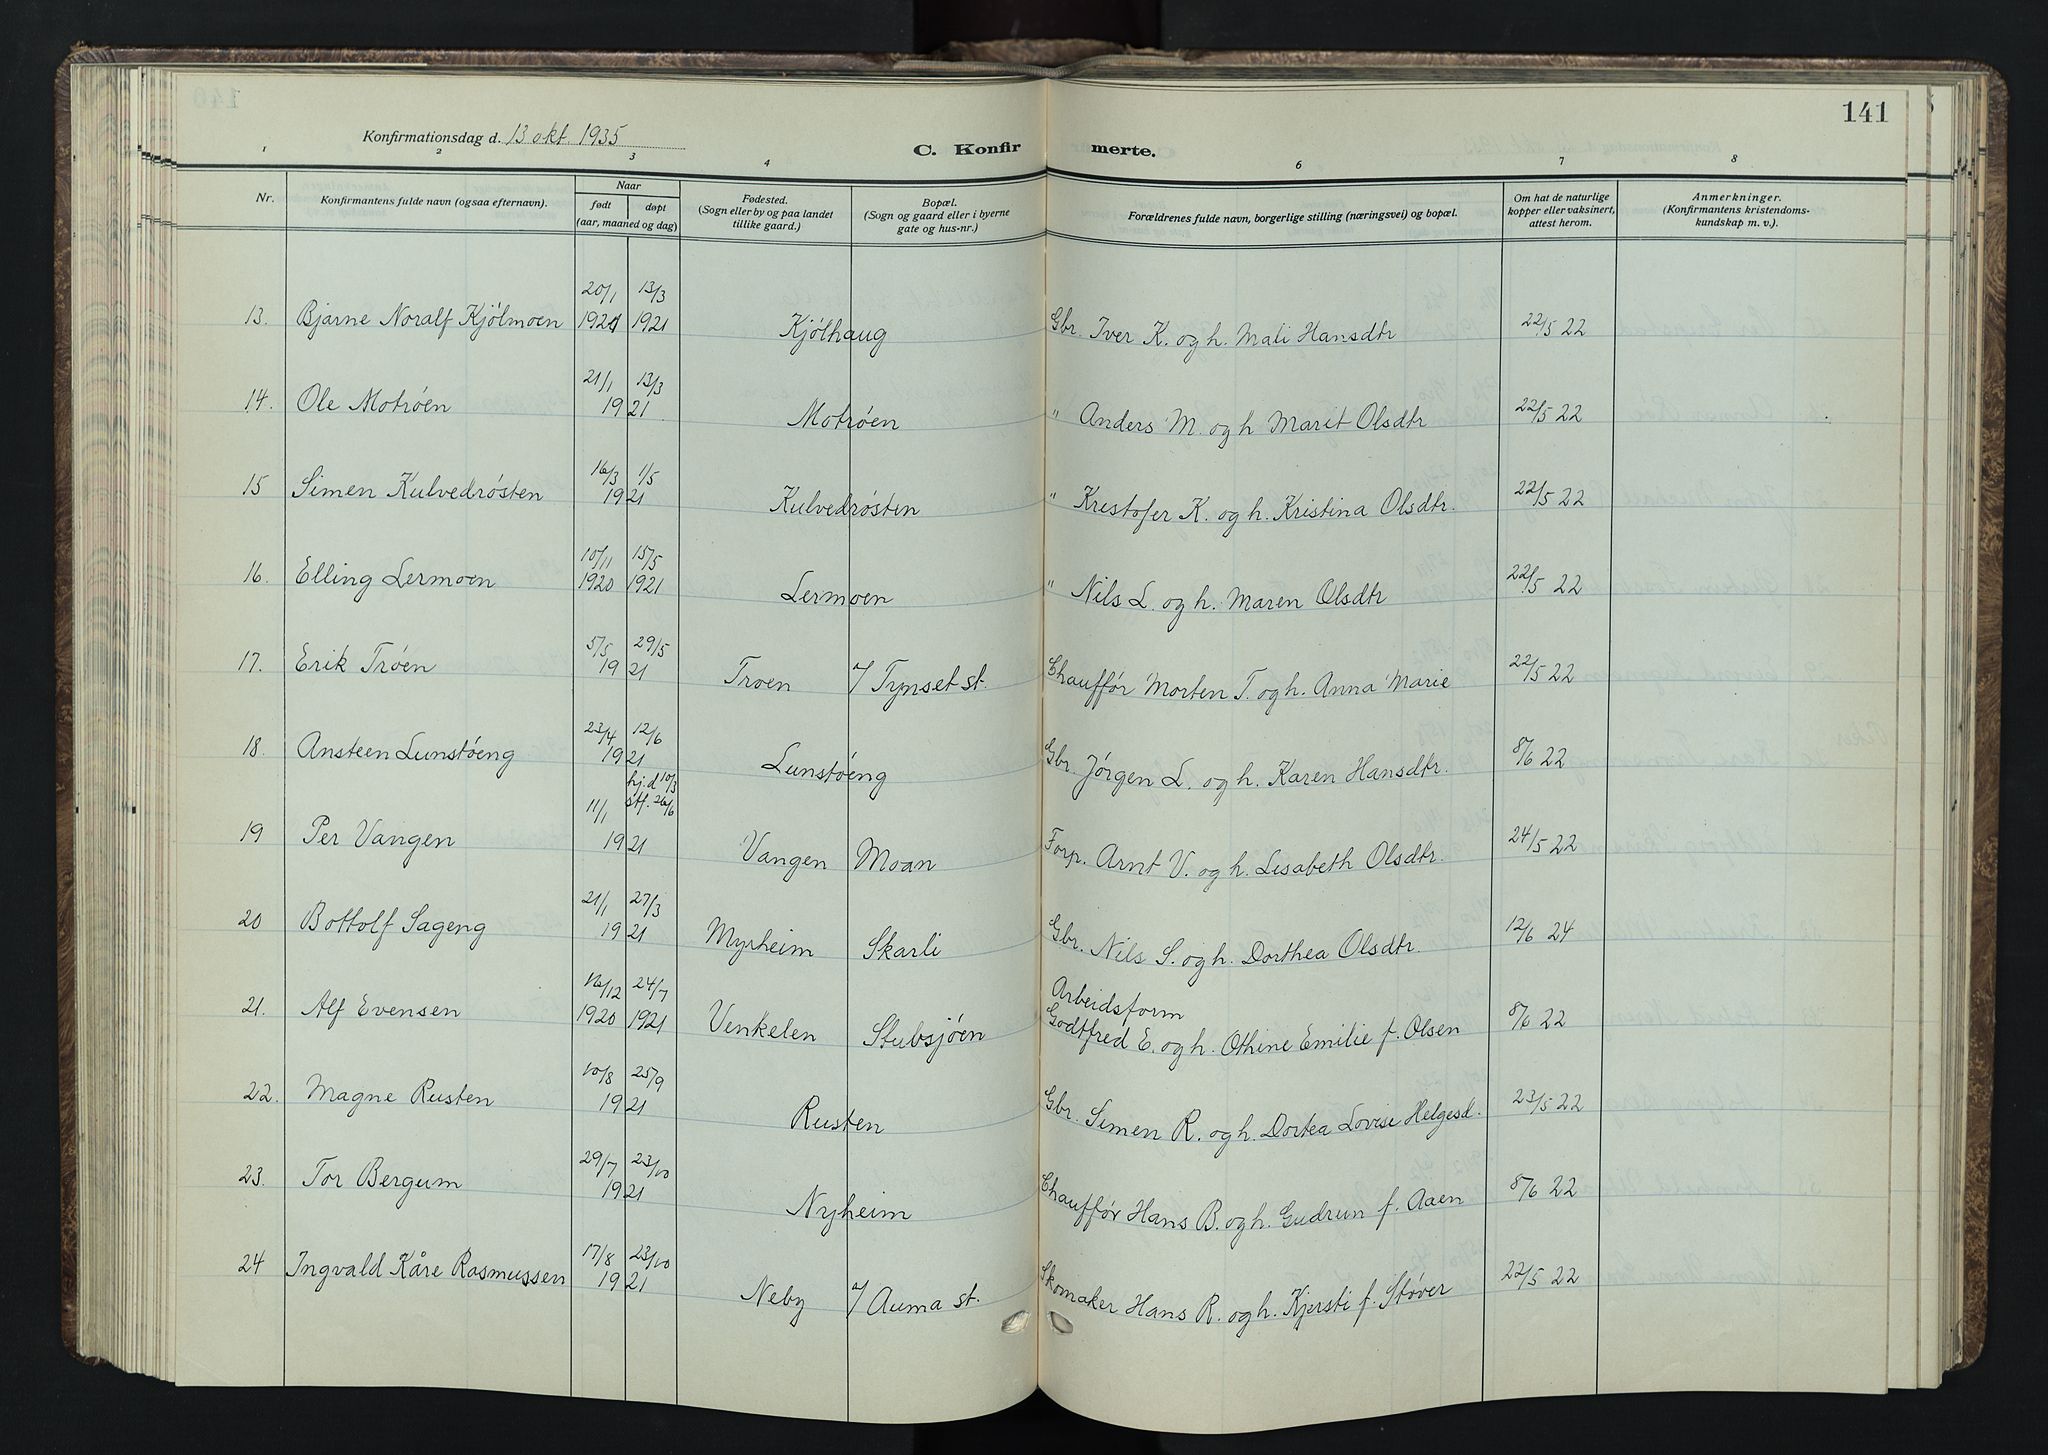 141
Konfirmationsdag d. 13 okt. 1935
C. Konfirmerte.
1 2 3 4 5 6 7 8
Nr. Konfirmantens fulde navn (ogsaa efternavn). Naar født døpt (aar, maaned og dag) Fødested. (Sogn eller by og paa landet tillike gaard.) Bopæl. (Sogn og gaard eller i byerne gate og hus-nr.) Forældrenes fulde navn, borgerlige stilling (næringsvei) og bopæl. Om hat de naturlige kopper eller vaksinert, attest herom. Anmerkninger. (Konfirmantens kristendomskundskap m. v.).
13. Bjarne Noralf Kjølmoen 20/1 1921 13/3 1921 Kjølhaug Gbr. Iver K. og h. Mali Hansdtr 22/5 22
14. Ole Motrøen 21/1 13/3 1921 Motrøen " Anders M. og h Marit Olsdtr 22/5 22
15 Simen Kulvedrøsten 16/3 1/5 1921 Kulvedrøsten " Krestofer K. og h. Kristina Olsdtr. 22/5 22
16. Elling Lermoen 10/11 1920 15/5 1921 Lermoen " Nils L. og h. Maren Olsdtr 22/5 22
17. Erik Trøen 5/5 29/5 1921 Troen 7/ Tynset st. Chauffør Morten T. og h. Anna Marie 22/5 22
18. Ansteen Lunstøeng 23/4 12/6 1921 Lunstøeng Gbr. Jørgen L. og h. Karen Hansdtr. 8/6 22
19 Per Vangen 11/1 hj.d 10/3 stf. 26/6 1921 Vangen Moan Forp. Arnt V. og h. Lisabeth Olsdtr. 24/5 22
20 Bottolf Sageng 21/1 27/3 1921 Myrheim Skarli Gbr. Nils S. og h. Dorthea Olsdtr. 12/6 24
21. Alf Evensen 16/12 1920 24/7 1921 Venkelen Stubsjøen Arbeidsform Godtfred E. og h. Othine Emilie f. Olsen 8/6 22
22. Magne Rusten 10/8 25/9 1921 Rusten Gbr. Simen R. og h. Dortea Lovise Helgesd. 23/5 22
23. Tor Bergum 29/7 23/10 1921 Nyheim Chauffør Hans B. og h. Gudrun f. Aaen 8/6 22
24 Ingvald Kåre Rasmussen 17/8 23/10 1921 Neby 7/ Auma st. Skomaker Hans R. og h. Kjersti f. Støver 22/5 22